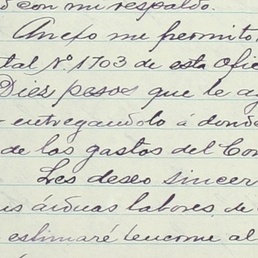 con mi respaldo.
Anexo me permito
tal Nº 1703 de esta Ofic
Diez pesos que le a
entregandolo á donde
de los gastos del Con
Les deseo sincer
us árduas labores, de
estimaré tenerme al